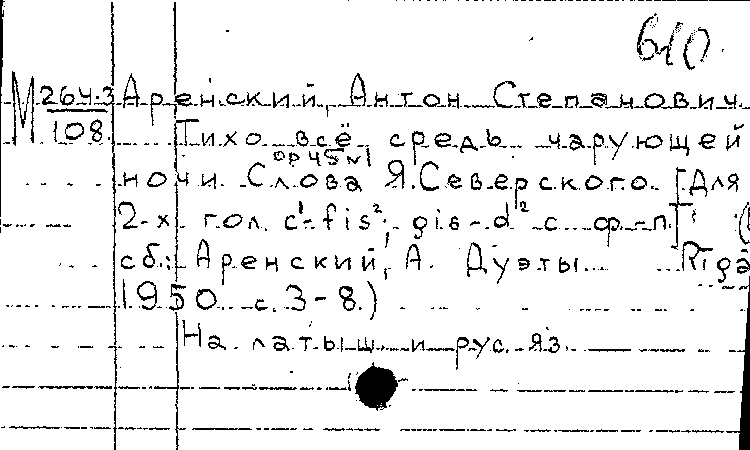 610
М 264-3 Аренский, Антон Степанович
108. Тихо всё средь чарующей
op 45 №1
ночи. Слова Я.Северского. [Для
2-х гол. c¹-fis²; gis-d² с ф-п.] (
сб.: Аренский, А. Дуэты Rīgā
1950 с. 3-8.)
На латыш. и рус. яз.